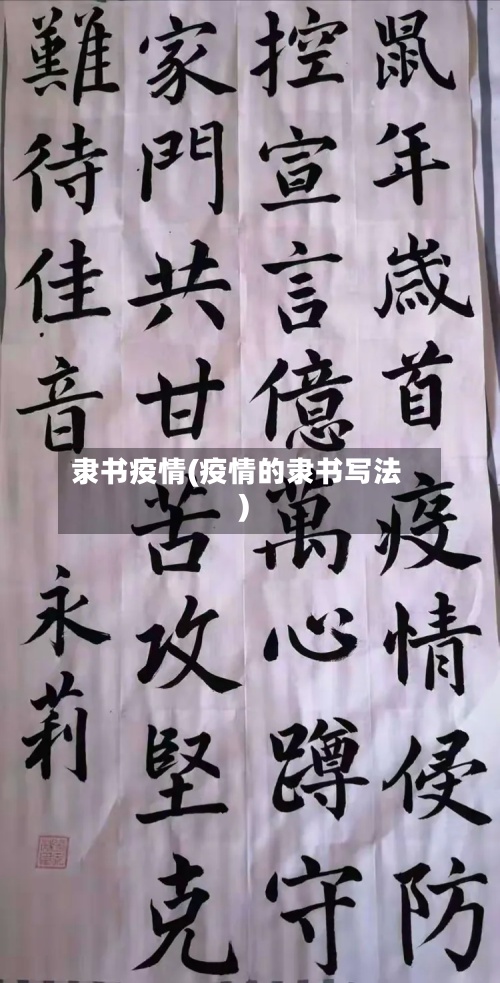 鼠年歲首疫情侵防
控宣言億萬心蹲守
家門共甘苦攻堅克
難待佳音
永莉
隶书疫情(疫情的隶书写法
)